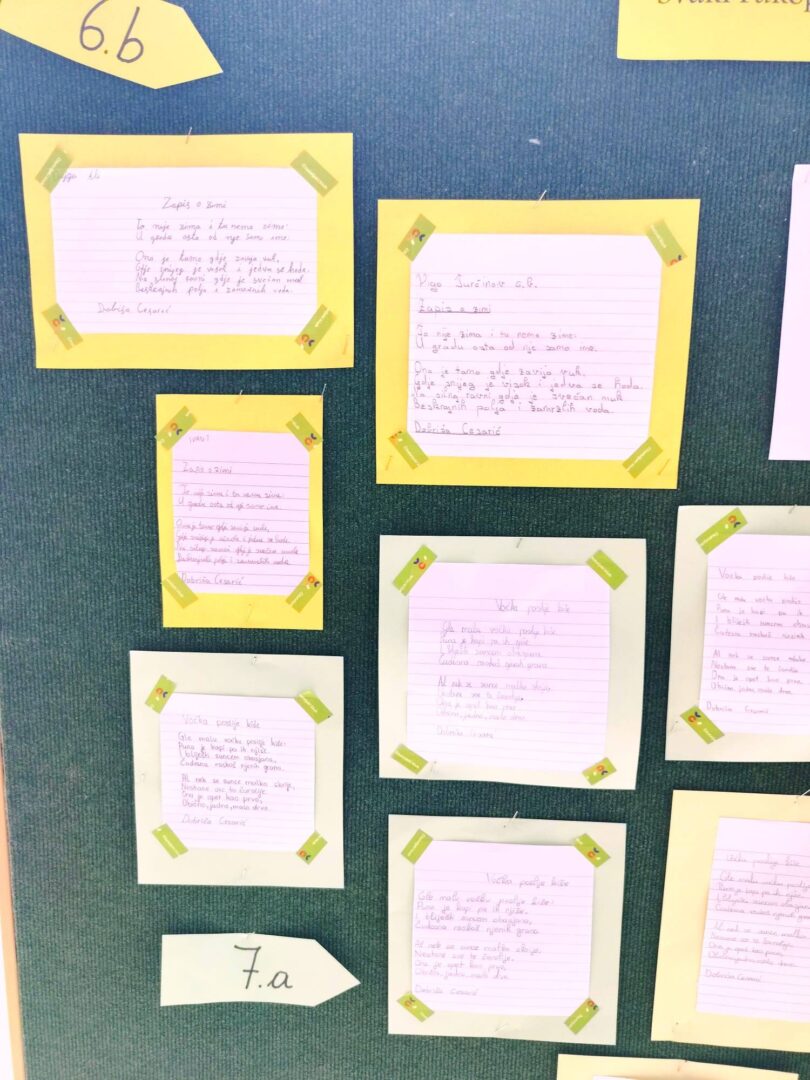 6.b
Svaki rukop
Zapis o zimi
To nije zima i tu nema zime:
U gradu osta od nje samo ime.
Ona je tamo gdje zavija vuk,
Gdje snijeg je visok i jedva se hoda.
Na sinoj ravni gdje je svečan muk
Beskrajnih polja i zamrznih voda.
Dobriša Cesarić
Vigo Jurčinov 6.b.
Zapis o zimi
To nije zima i tu nema zime:
U gradu osta od nje samo ime.
Ona je tamo gdje zavija vuk.
Gdje snijeg je visok i jedva se hoda.
Na sinoj ravni gdje je svečan muk
Beskrajnih polja i zamrzlih voda.
Dobriša Cesarić
Zapis o zimi
To nije zima i tu nema zime:
U gradu osta od nje samo ime.
Ona je tamo gdje zavija
gdje snijeg je visok i jedva se hoda.
gdje je svečan
Beskrajnih polja i voda.
Dobriša Cesarić
Voćka poslije kiše
Gle malu voćku poslije kiše:
Puna je kapi pa ih njiše.
I bliješti suncem obasjana,
Čudesna raskoš njenih grana.
Al nek se sunce malko skrije,
Nestane sve te čarolije.
Ona je opet kao prvo,
Obično, jadno, malo drvo.
Dobriša Cesarić
Voćka poslije kiše
Gle malu voćku poslije kiše:
Puna je kapi pa ih njiše.
I bliješti suncem obasjana,
Čudesna raskoš njenih grana.
Al nek se sunce malko skrije,
Nestane sve te čarolije.
Ona je opet kao prvo,
Obično, jadno, malo drvo.
Dobriša Cesarić
Voćka poslije kiše
Gle malu voćku poslije
Puna je kapi pa ih
I bliješti suncem
Čudesna raskoš njenih
Al nek se sunce malko
Nestane sve te
Ona je opet kao prvo,
Obično, jadno, malo drvo.
Dobriša Cesarić
7.a
Voćka poslije kiše
Gle malu voćku poslije kiše:
Puna je kapi pa ih njiše.
I bliješti suncem obasjana,
Čudesna raskoš njenih grana.
Al nek se sunce malko skrije,
Nestane sve te čarolije.
Ona je opet kao prvo,
Obično, jadno, malo drvo.
Dobriša Cesarić
Voćka poslije kiše
Gle malu voćku poslije
Puna je kapi pa ih njiše.
I bliješti suncem obasjana,
Čudesna raskoš njenih
Al nek se sunce malko
Nestane sve te čarolije.
Ona je opet kao prvo,
Obično, jadno, malo drvo.
Dobriša Cesarić